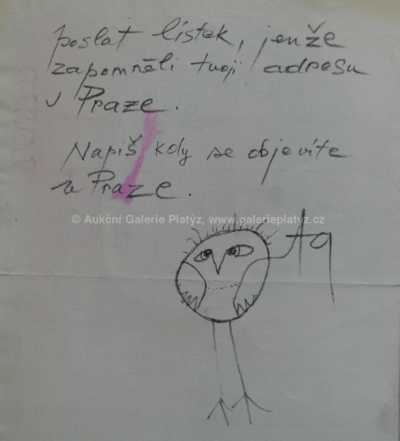 poslat lístek, jenže
zapomněli tvoji adresu
v Praze.
Napiš kdy se objevíte
v Praze.
© Aukční Galerie Platýz, www.galerieplatyz.cz